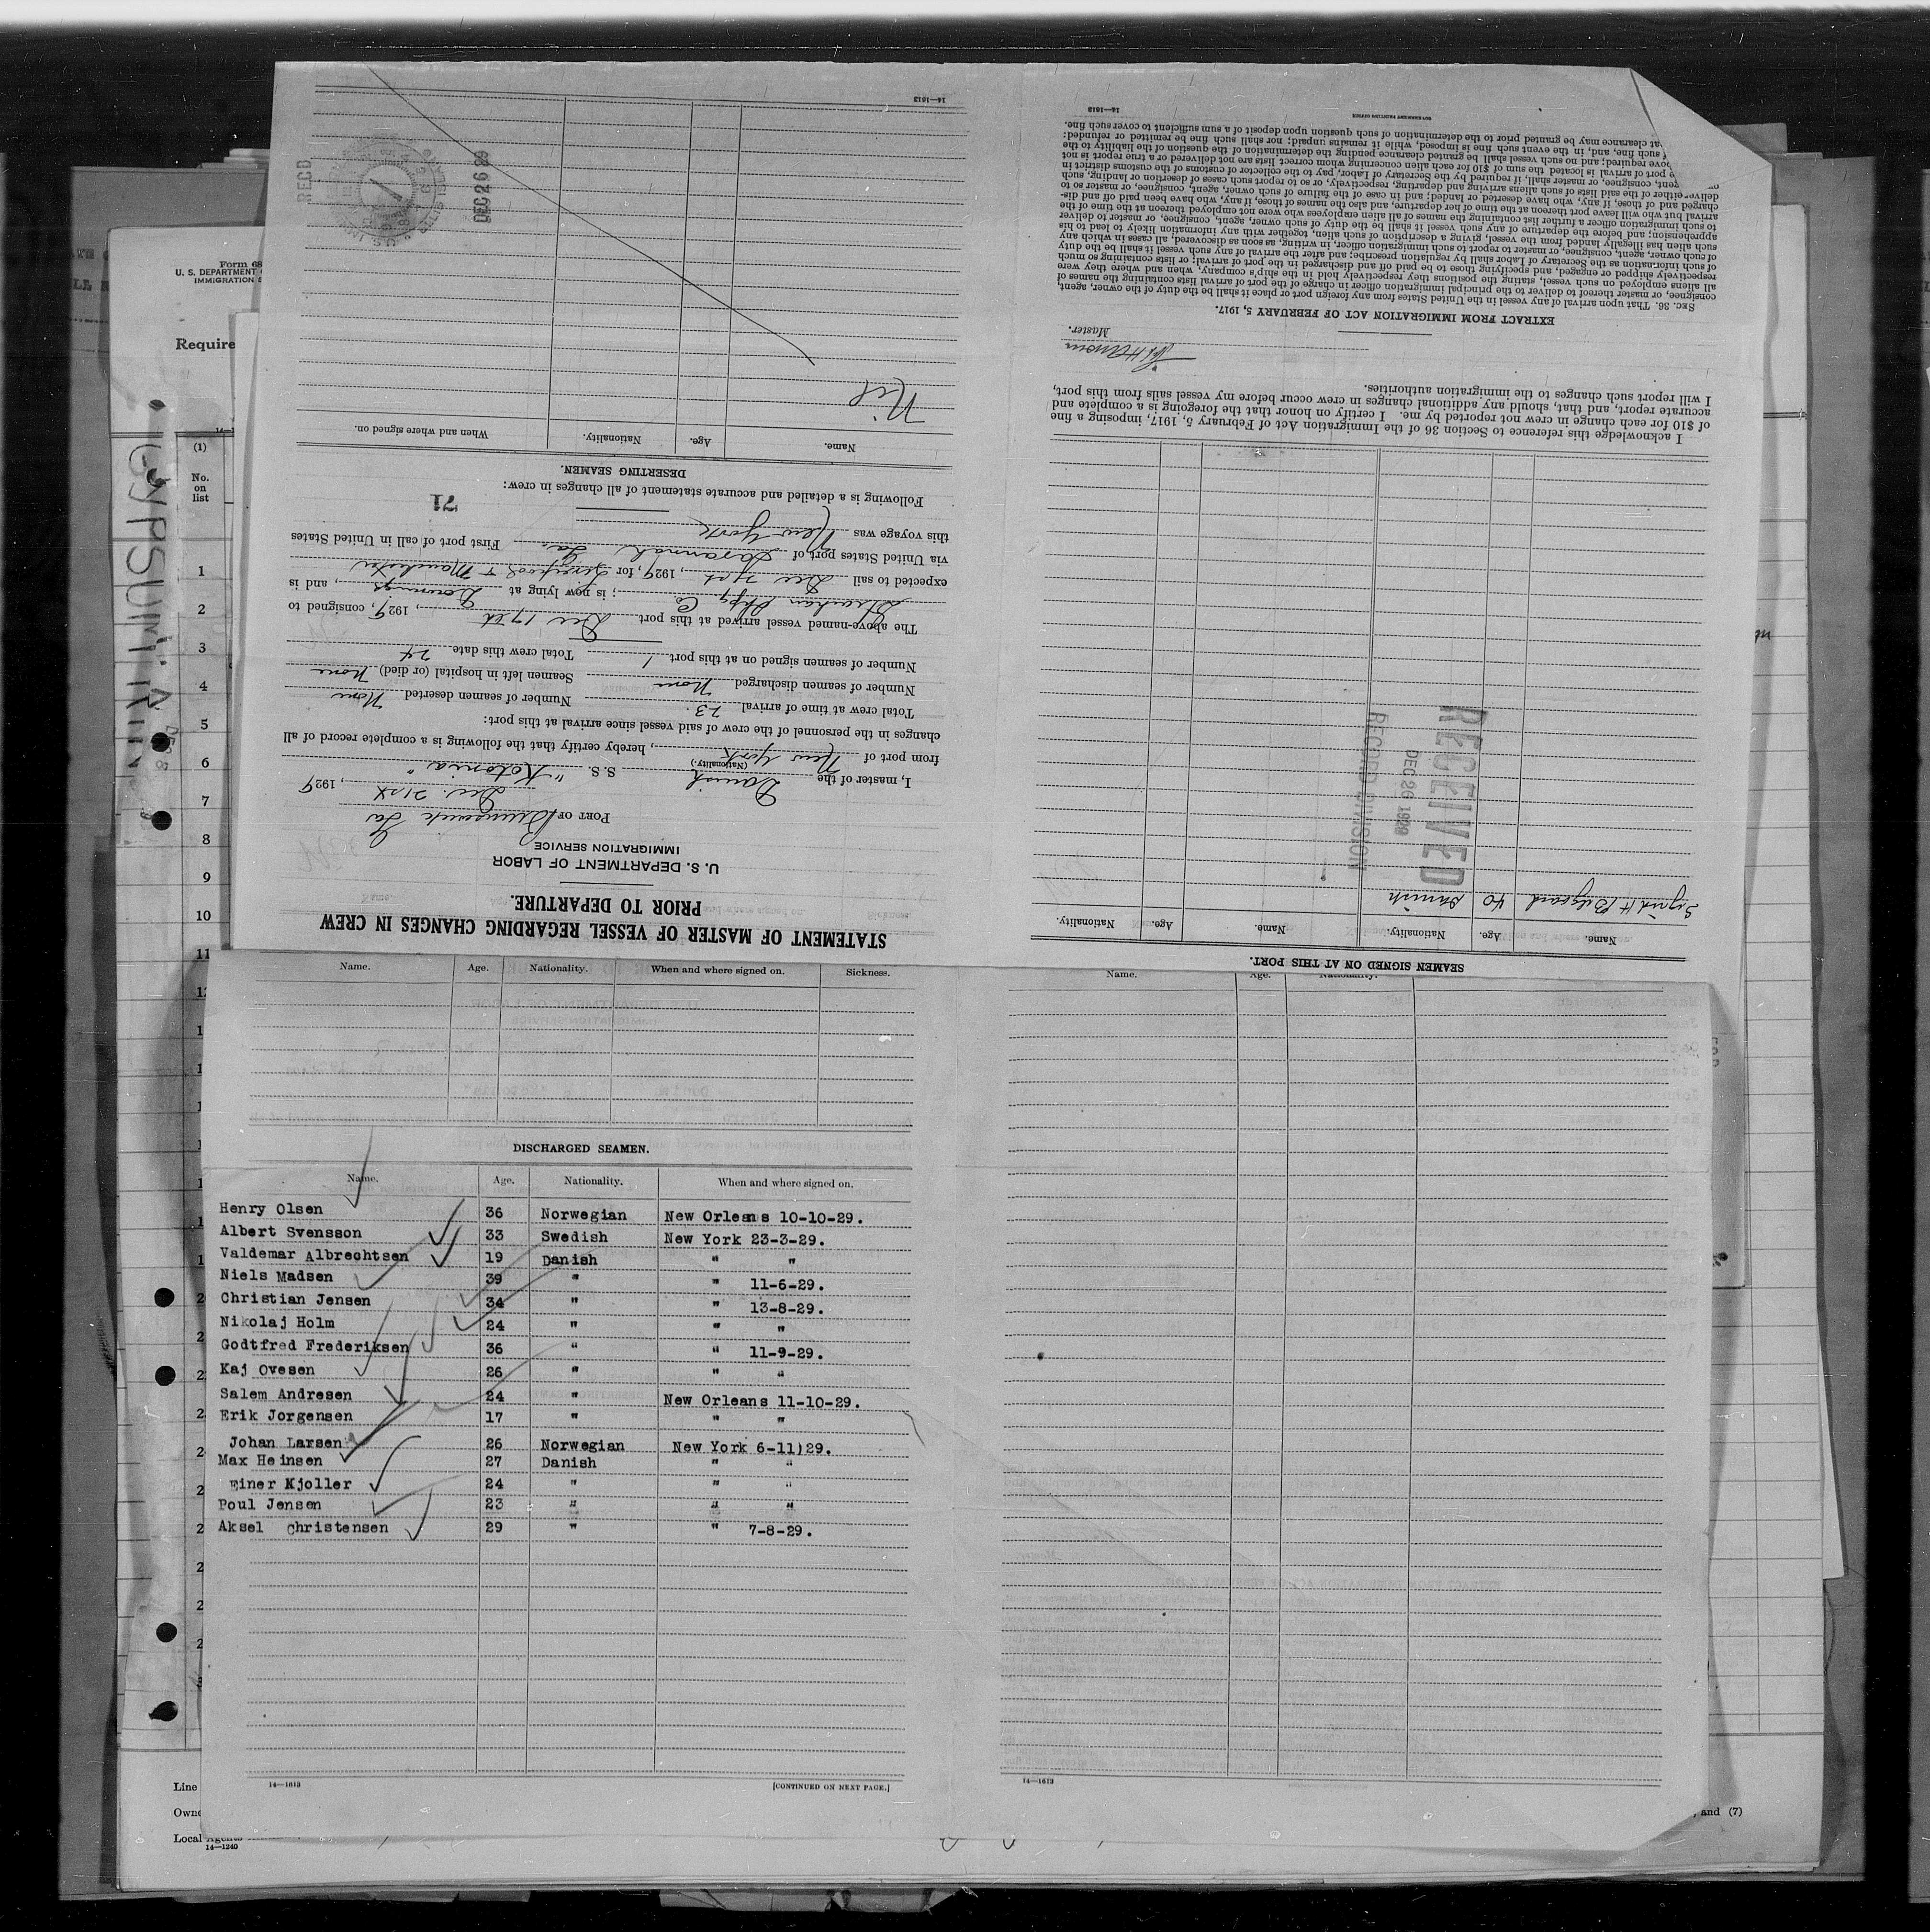 STATEMENT OF MASTER OF VESSEL REGARDING CHANGES IN CREW
PRIOR TO DEPARTURE.
U. S. DEPARTMENT OF LABOR
IMMIGRATION SERVICE
PORT OF Brunswick Ga
Dec. 21st, 1929
I, master of the Danish S. S. "Kotonia"
(Nationality.)
from port of New York, hereby certify that the following is a complete record of all
changes in the personnel of the crew of said vessel since arrival at this port:
Total crew at time of arrival 23. Number of seamen deserted None
Number of seamen discharged None Seamen left in hospital (or died) None
Number of seamen signed on at this port 1 Total crew this date 24
The above-named vessel arrived at this port Dec 19th, 1929, consigned to
Strachan Shpg Co; is now lying at Downings, and is
expected to sail Dec 21st, 1929, for Liverpool + Manchester
via United States port of Savannah Ga First port of call in United States
this voyage was New York
71
Following is a detailed and accurate statement of all changes in crew:
DESERTING SEAMEN.
Name. Age. Nationality. When and where signed on.
Nil
REC'D
DEC 26 29
14—1613
SEAMEN SIGNED ON AT THIS PORT.
Name. Age. Nationality. Name. Age. Nationality.
Sigrid H 40 Danish
RECEIVED
DEC 26 1929
RECORD DIVISION
I acknowledge this reference to Section 36 of the Immigration Act of February 5, 1917, imposing a fine
of $10 for each change in crew not reported by me. I certify on honor that the foregoing is a complete and
accurate report, and that, should any additional changes in crew occur before my vessel sails from this port,
I will report such changes to the immigration authorities.
Master.
EXTRACT FROM IMMIGRATION ACT OF FEBRUARY 5, 1917.
SEC. 36. That upon arrival of any vessel in the United States from any foreign port or place it shall be the duty of the owner, agent,
consignee, or master thereof to deliver to the principal immigration officer in charge of the port of arrival lists containing the names of
all aliens employed on such vessel, stating the positions they respectively hold in the ship's company, when and where they were
respectively shipped or engaged, and specifying those to be paid off and discharged in the port of arrival; or lists containing so much
of such information as the Secretary of Labor shall by regulation prescribe; and after the arrival of any such vessel it shall be the duty
of such owner, agent, consignee, or master to report to such immigration officer, in writing, as soon as discovered, all cases in which any
such alien has illegally landed from the vessel, giving a description of such alien, together with any information likely to lead to his
apprehension; and before the departure of any such vessel it shall be the duty of such owner, agent, consignee, or master to deliver
to such immigration officer a further list containing the names of all alien employees who were not employed thereon at the time of the
arrival but who will leave port thereon at the time of her departure, and also the names of those, if any, who have been paid off and dis-
charged and of those, if any, who have deserted or landed; and in case of the failure of such owner, agent, consignee, or master so to
deliver either of the said lists of such aliens arriving and departing, respectively, or so to report such cases of desertion or landing, such
agent, consignee, or master shall, if required by the Secretary of Labor, pay to the collector of customs of the customs district in
port of arrival is located the sum of $10 for each alien concerning whom correct lists are not delivered or a true report is not
above required; and no such vessel shall be granted clearance pending the determination of the question of the liability to the
such fine, and, in the event such fine is imposed, while it remains unpaid; nor shall such fine be remitted or refunded:
at clearance may be granted prior to the determination of such question upon deposit of a sum sufficient to cover such fine.
GOVERNMENT PRINTING OFFICE
14—1613
Name. Age. Nationality. When and where signed on. Sickness.
Name. Age. Nationality.
DISCHARGED SEAMEN.
Name. Age. Nationality. When and where signed on.
Henry Olsen 36 Norwegian New Orleans 10-10-29.
Albert Svensson 33 Swedish New York 23-3-29.
Valdemar Albrechtsen 19 Danish " "
Niels Madsen 39 " " 11-6-29.
Christian Jensen 34 " " 13-8-29.
Nikolaj Holm 24 " " "
Godtfred Frederiksen 36 " " 11-9-29.
Kaj Ovesen 26 " " "
Salem Andresen 24 " New Orleans 11-10-29.
Erik Jorgensen 17 " " "
Johan Larsen 26 Norwegian New York 6-11)29.
Max Heinsen 27 Danish " "
Einer Kjoller 24 " " "
Poul Jensen 23 " " "
Aksel Christensen 29 " " 7-8-29.
14—1613
[CONTINUED ON NEXT PAGE.]
14—1613
Form 68
U. S. DEPARTMENT
IMMIGRATION
Require
(1)
No.
on
list
1
2
3
4
5
6
7
8
9
10
11
GYPSUM
Line
Owne
Local Agents
14—1240
, and (7)